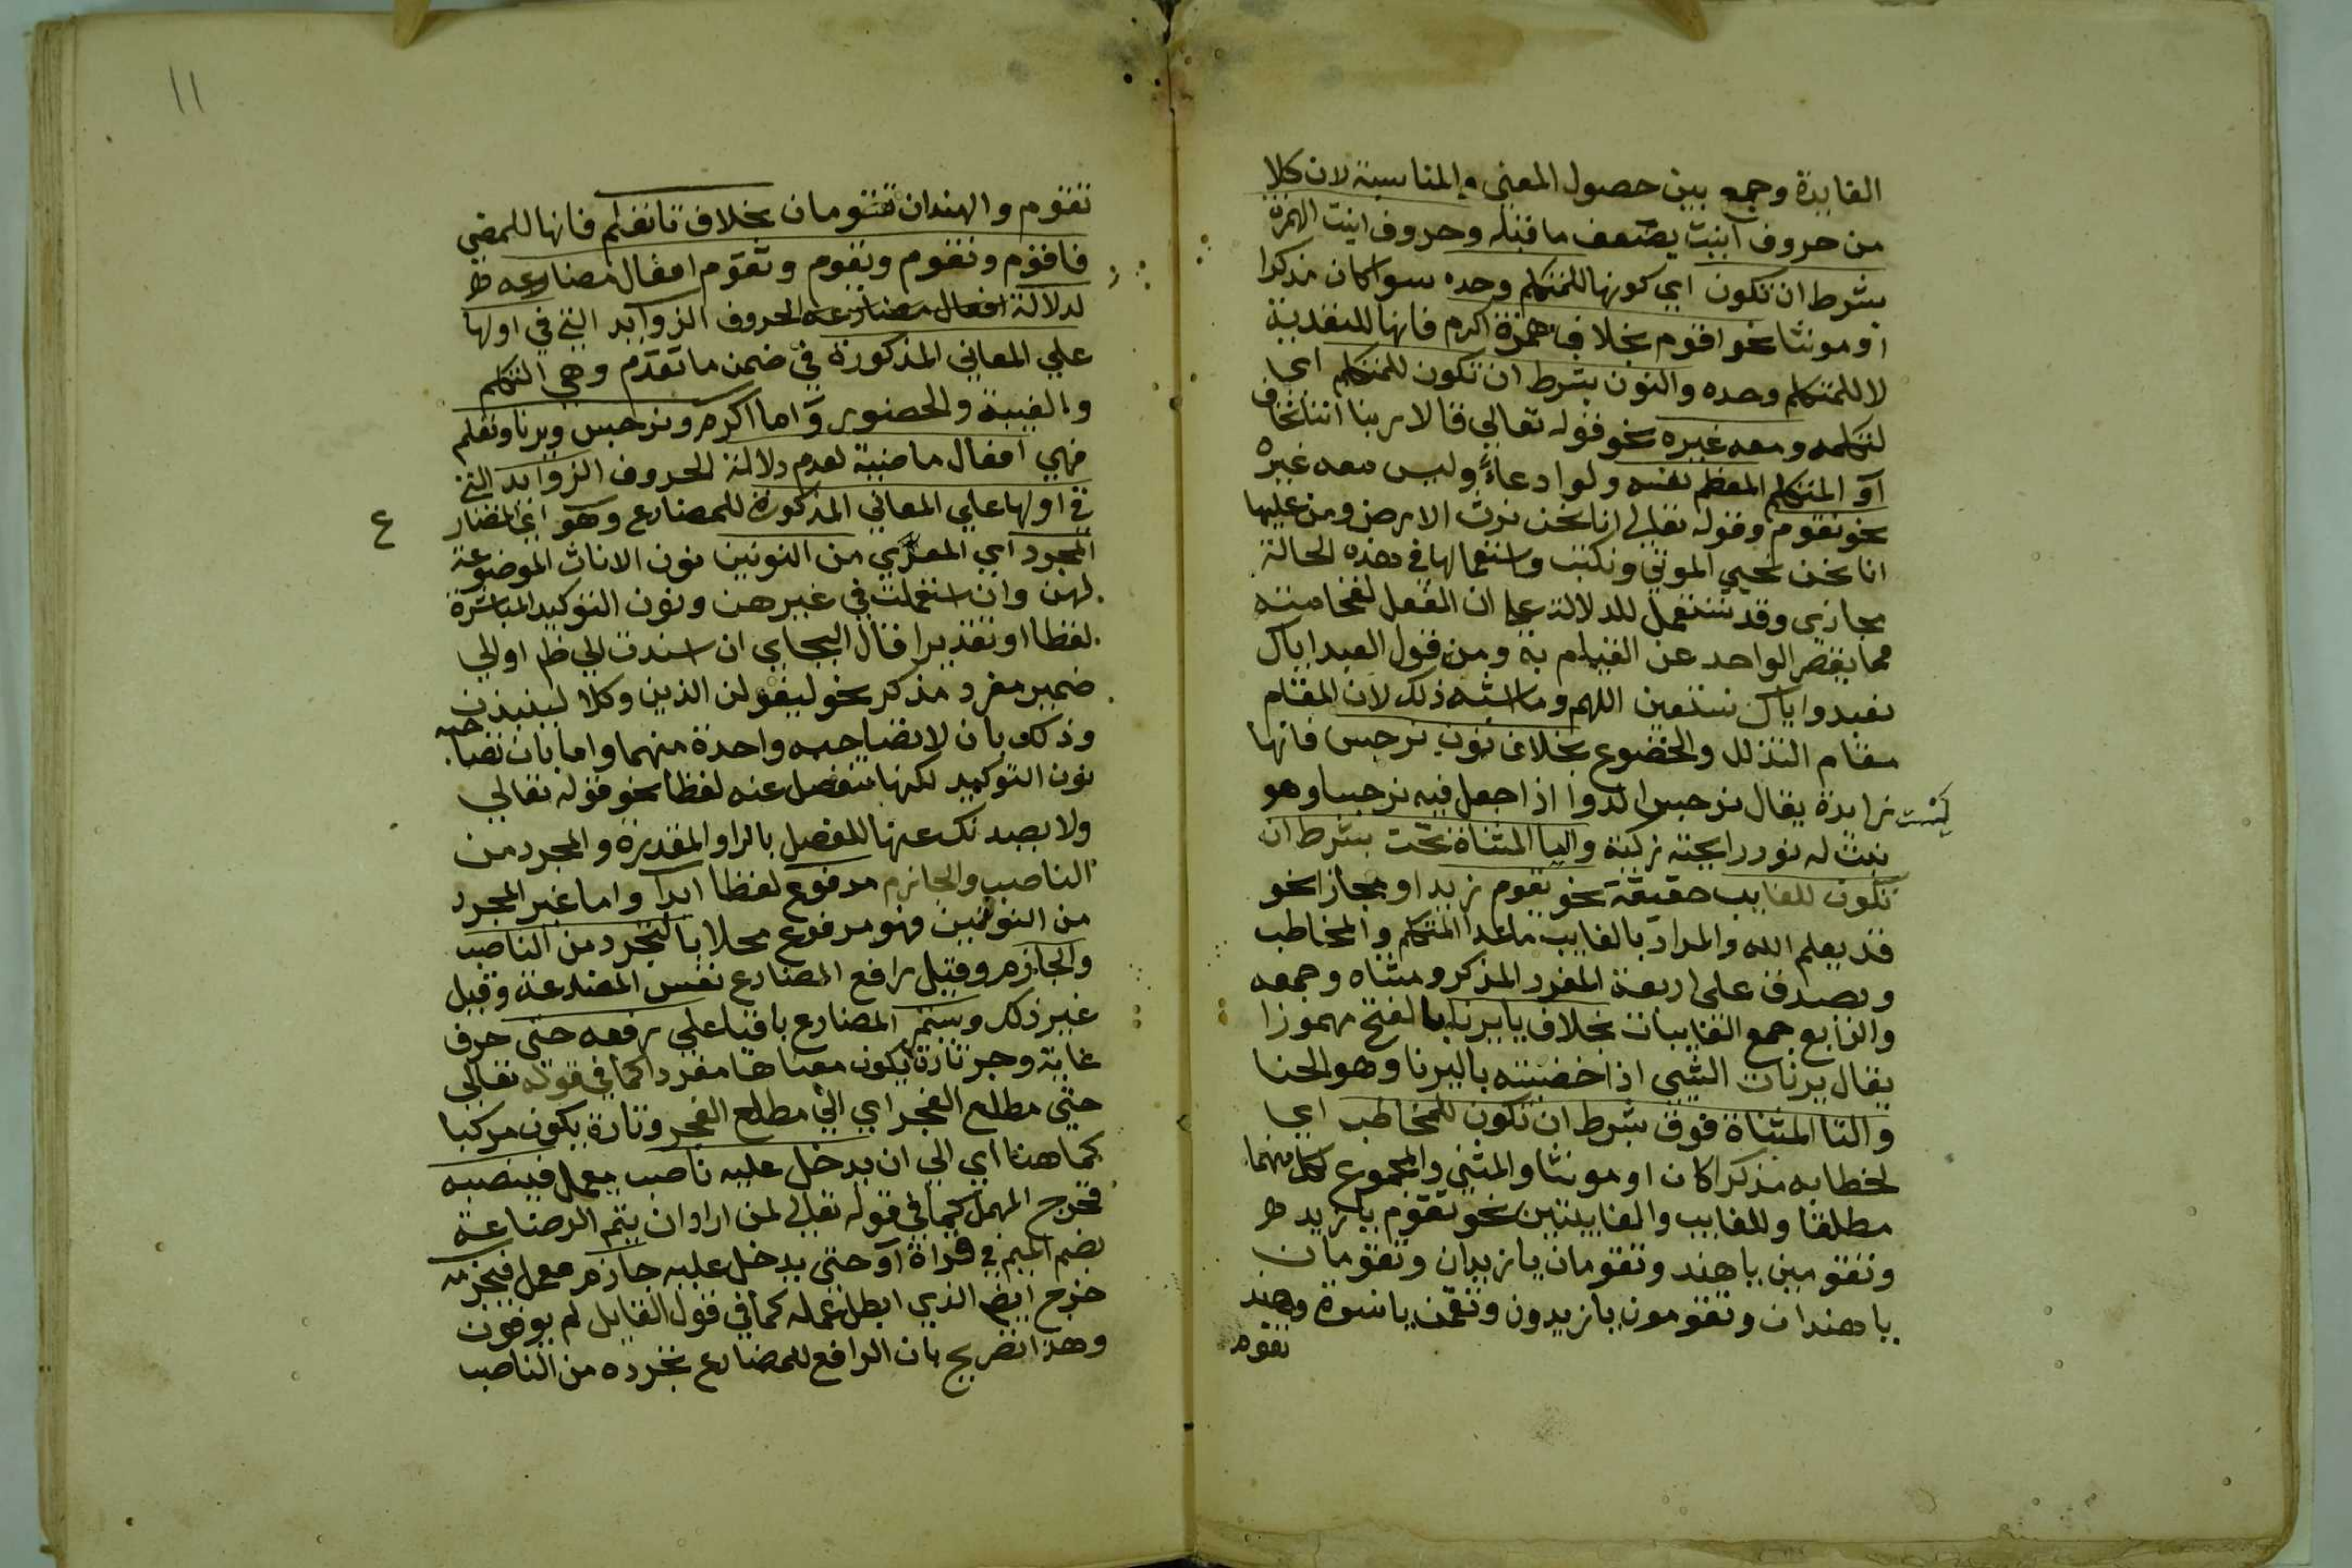 الفايدة وجمع بين حصول المعني والمناسبة لان كلا
من حروف انيت يضعف ما قبله وحروف انيت الهمزة
بشرط ان تكون اي كونها للمتكلم وحده سوا كان مذكرا
او مونثا نحو اقوم بخلاف همزة اكرم فانها للتعدية
لا للمتكلم وحده والنون بشرط ان تكون للمتكلم اي
لتكلمه ومعه غيره نحو قوله تعالي قالا ربنا اننا نخاف
او المتكلم المعظم نفسه ولو ادعاءً وليس معه غيره
نحو نقوم وقوله تعالي انا نحن نرث الارض ومن عليها
انا نحن نحيي الموتي ونكتب واستعمالها في هذه الحالة
مجازي وقد تستعمل للدلالة علي ان الفعل لفخامته
مما يقصر الواحد عن القيام به ومن قول العبد اياك
نعبد واياك نستعين اللهم وما اشبه ذلك لان المقام
مقام التذلل والخضوع بخلاف نون نرجس فانها
زايدة يقال نرجس الدوا اذا جعل فيه نرجسا وهو
نبت له نور رايحته زكية واليا المثناة تحت بشرط ان
تكون للغايب حقيقة نحو يقوم زيد او مجازا نحو
قد يعلم الله والمراد بالغايب ما عدا المتكلم والمخاطب
ويصدق على اربعة المفرد المذكر ومثناه وجمعه
والرابع جمع الغايبات بخلاف يا يرنا بالفتح مهموزا
يقال يرنات الشي اذا خضبته باليرنا وهو الحنا
والتا المثناة فوق بشرط ان تكون للمخاطب اي
لخطابه مذكرا كان او مونثا والمثني والمجموع لكل منهما
مطلقا وللغايب والغايبتين نحو تقوم يا زيد
وتقومين يا هند وتقومان يا زيدان وتقومان
يا هندان وتقومون يا زيدون وتقمن يا نسوة وهند
تقوم
١١
تقوم والهندان تقومان بخلاف تا تعلم فانها للمضي
فاقوم ونقوم ويقوم وتقوم افعال مضارعه
لدلالة افعال مضارعه الحروف الزوايد التي في اولها
علي المعاني المذكورة في ضمن ما تقدم وهي التكلم
والغيبة والحضور واما اكرم ونرجس ويرنا وتعلم
فهي افعال ماضية لعدم دلالة الحروف الزوايد التي
في اولها علي المعاني المذكورة للمضارع وهو اي المضار
ع
المجرد اي المعري من النونين نون الاناث الموضوعة
لهن وان استعملت في غيرهن ونون التوكيد المباشرة
لفظا او تقديرا قال البجاي ان اسندت الي ظم او الي
ضمير مفرد مذكر نحو ليقولن الذين وكلا لينبذن
وذلك بان لا تصاحبه واحدة منهما واما بان تصاحبه
نون التوكيد لكنها تنفصل عنه لفظا نحو قوله تعالي
ولا يصدنك عنها للفصل بالواو المقدرة والمجرد من
الناصب والجازم مرفوع لفظا ابدا واما غير المجرد
من النونين فهو مرفوع محلا بالتجرد من الناصب
والجازم وقيل رافع المضارع نفس المضارعة وقيل
غير ذلك ويستمر المضارع باقيا علي رفعه حتى حرف
غاية وجر تارة يكون معناها مفردا كما في قوله تعالي
حتي مطلع الفجر اي الي مطلع الفجر وتارة يكون مركبا
كما هنا اي الي ان يدخل عليه ناصب يعمل فينصبه
فخرج المهمل كما في قوله تعالي لمن اراد ان يتم الرضاعة
بضم الميم في قراة او حتى يدخل عليه جازم معمل فيجزمه
خرج ايضا الذي ابطل عمله كما في قول القايل لم يوفون
وهذا تصريح بان الرافع للمضارع تجرده من الناصب